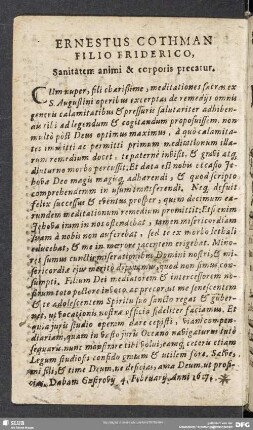 ERNESTUS COTHMAN
FILIO FRIDERICO,
Sanitatem animi & corporis precatur.
CUm nuper, fili charissime, meditationes sacras ex
S. Augustini operibus excerptas de remedijs omnis
generis calamitatibus & pressuris salutariter adhiben-
dis tibi ad legendum & cogitandum proposuissem. non
multò post Deus optimus maximus, à quo calamita-
tes immitti ac permitti primum meditationum illa-
rum remedium docet, te paternè invisit, & gravi atq́,
diuturno morbo percussit, Et data est nobis occasio Je-
hova Deo magis magisq́, adhærendi, & quod scripto
comprehenderam in usum transferendi, Neq́, defuit
felix successus & eventus prosper, quem decimum ea-
rundem meditationum remedium promittit; Etsi enim
Jehova iram in nos ostendebat, tamen misericordiam
suam à nobis non auferebat, sed te ex morbo lethali
educebat, & me in mœrore jacentem erigebat. Mino-
res sumus cunctis miserationibus Domini nostri, & mi-
sericordiæ ejus
sumpti, Filium Dei mediatorem & intercessorem no-
strum toto pectore invoco, ac precor, ut me senescentem
& te adolescentem Spiritu suo sancto regat & guber-
net, ut vocationis nostræ officia fideliter faciamus. Et
quia juris studio operam dare cepisti, viam compen-
diariam, quam in vasto juris Oceano navigaturum tutò
sequaris, nunc monstrare tibi volui, eamq́, ceteris etiam
Legum studiosis confido gratam & utilem fore. Salve,
mi fili, & time Deum, ne deficias, ama Deum, ut profi-
cias, Dabam Gustrovij 4. Februarij, anno 1617.